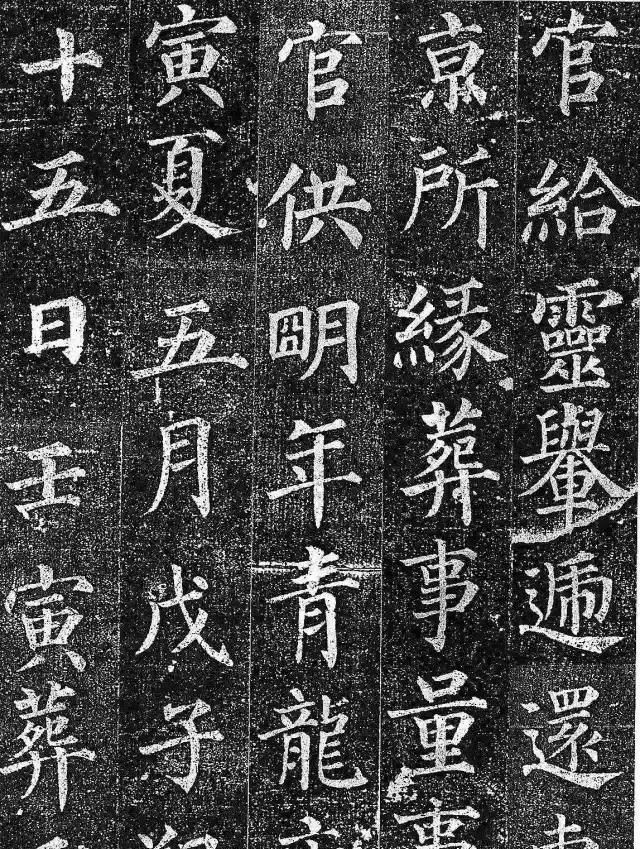 官給靈轝遞還
京所緣葬事量
官供明年青龍
寅夏五月戊子
十五日壬寅葬